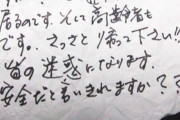 居るのです。そして高齢者も
です。さっさと帰って下さい!!
皆の迷惑になります。
安全だと言いきれますか??